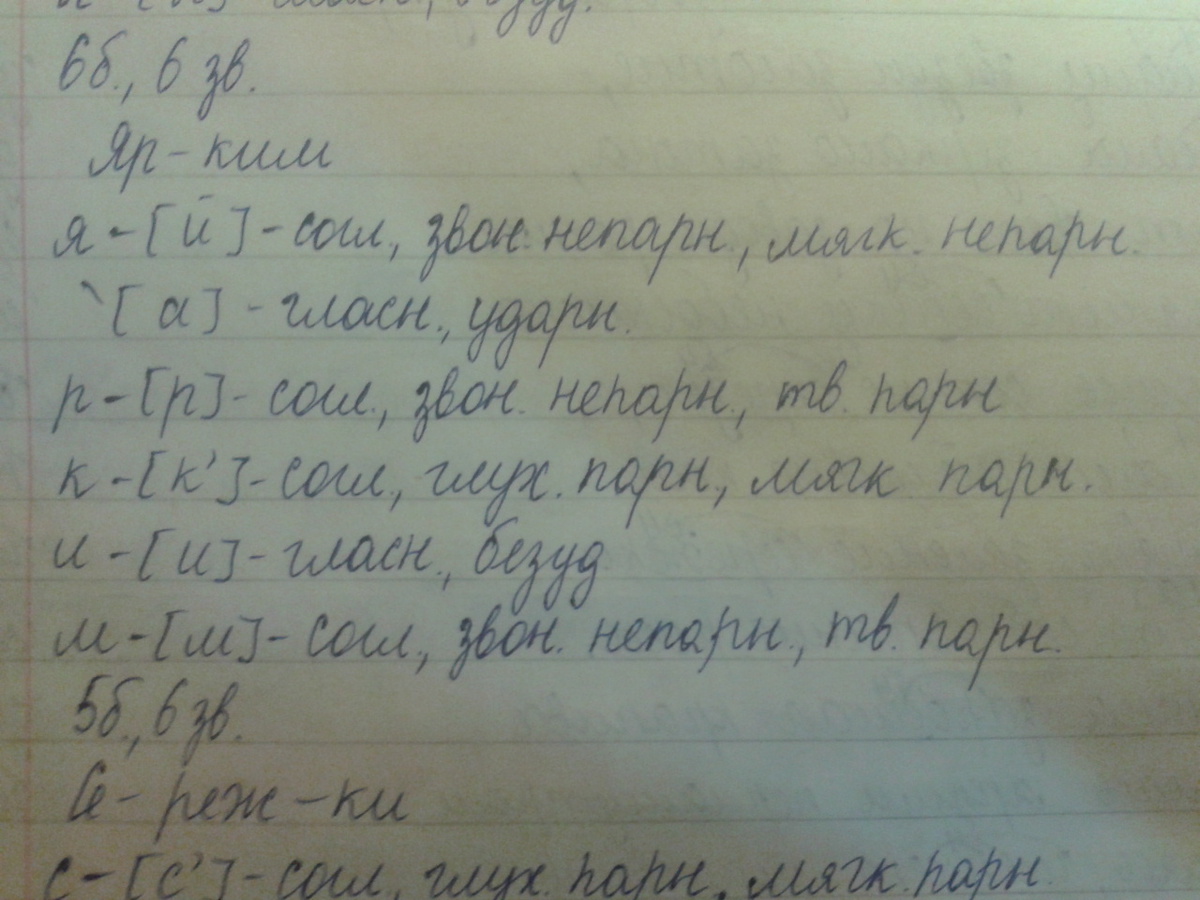 6б., 6 зв.
Яр - ким
я - [й] - согл, звон. непарн., мягк. непарн.
[а] - гласн., ударн.
р - [р] - согл., звон. непарн., тв. парн
к - [к'] - согл, глух. парн., мягк парн.
и - [и] - гласн., безуд
м - [м] - согл, звон. непарн., тв. парн.
5б., 6 зв.
Се - реж - ки
с - [с'] - согл, глух. парн, мягк. парн.